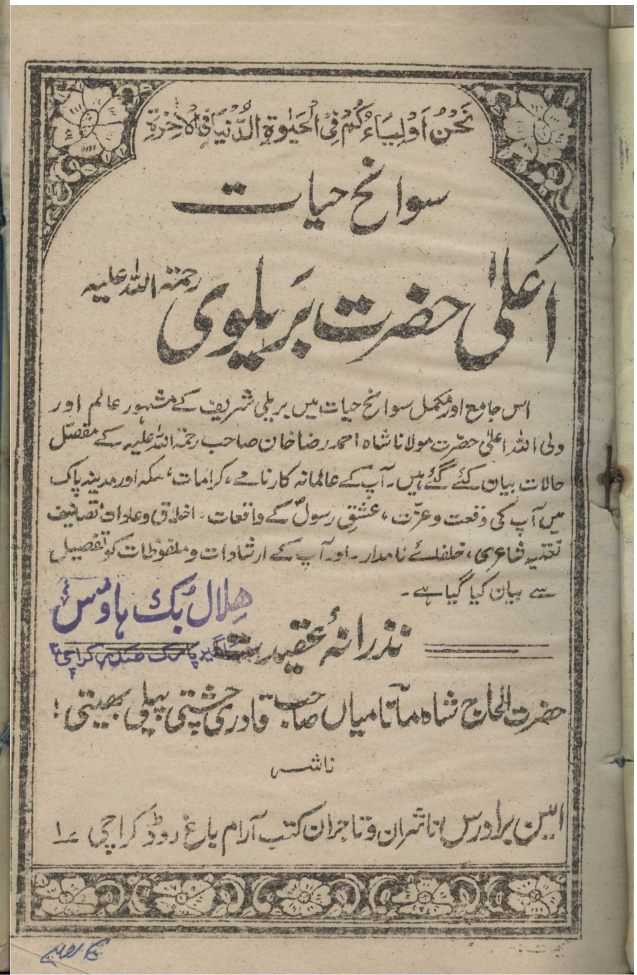 نَحْنُ اَوْلِيَاءُ كُمْ فِى الْحَيٰوةِ الدُّنْيَا فِى الْاٰخِرَةِ
سوانح حیات
اعلیٰ حضرت بریلوی رحمتہ اللہ علیہ
اس جامع اور مکمل سوانح حیات میں بریلی شریف کے مشہور عالم اور
ولی اللہ اعلیٰ حضرت مولانا شاہ احمد رضا خان صاحب رحمتہ اللہ علیہ کے مفصل
حالات بیان کئے گئے ہیں۔ آپ کے عالمانہ کارنامے، کرامات، مکہ اور مدینہ پاک
میں آپ کی وقعت و عزت، عشق رسولؐ کے واقعات۔ اخلاق و عادات تصنیف
نعتیہ شاعری، خلفائے نامدار۔ اور آپ کے ارشادات و ملفوظات کو تفصیل
سے بیان کیا گیا ہے۔
ھلال بک ہاؤس
نذرانۂ عقیدت
کراچی
حضرت الحاج شاہ مآنا میاں صاحب قادری چشتی پیلی بھیتی!
ناشر
امین برادرس ناشران و تاجران کتب آرام باغ روڈ کراچی ۱